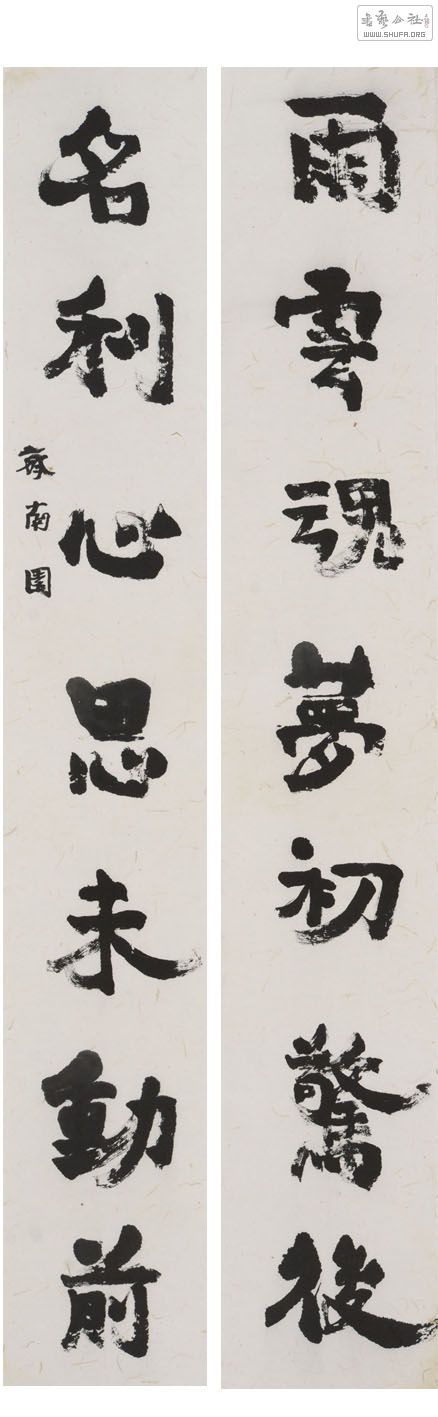 書藝公社
WWW.SHUFA.ORG
雨雲魂夢初驚後
名利心思未動前
齊南園